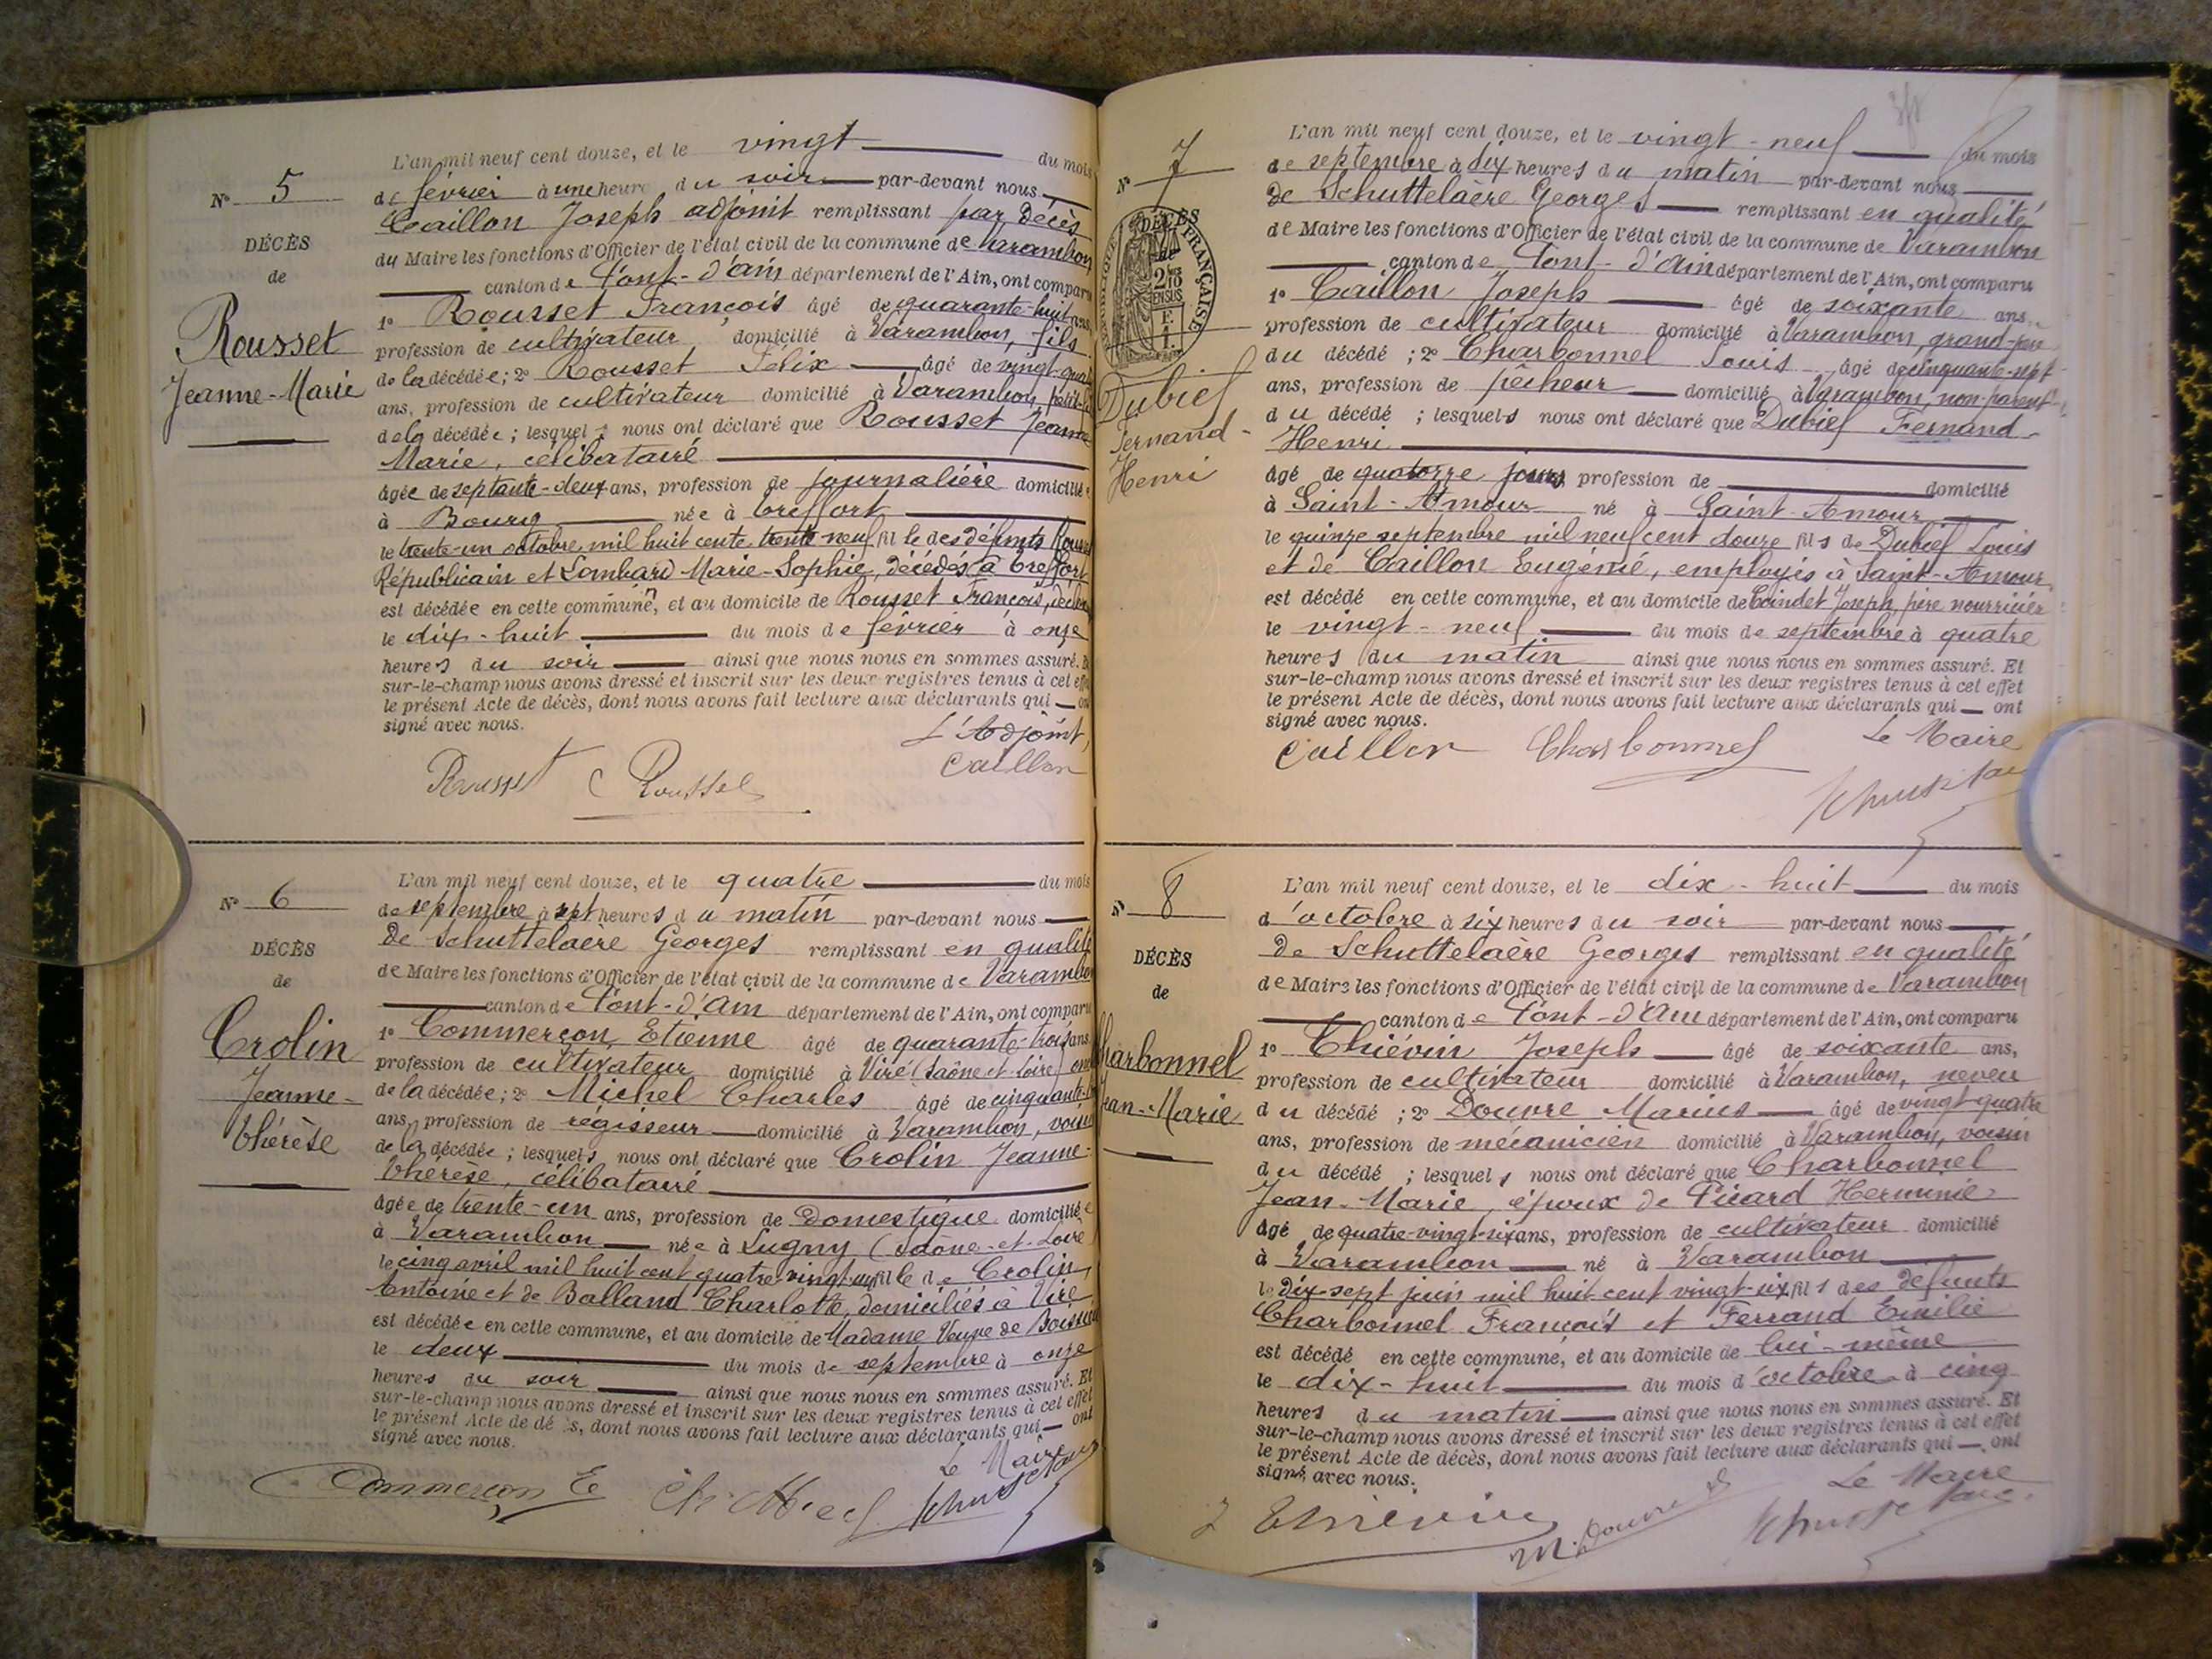 N° 5
DÉCÈS
de
Rousset
Jeanne-Marie
L'an mil neuf cent douze, et le vingt du mois
de février à une heure du soir par-devant nous
Caillon Joseph adjoint remplissant par décès
du Maire les fonctions d'Officier de l'état civil de la commune de Varambon
canton de Pont-d'ain, département de l'Ain, ont comparu
1° Rousset François âgé de quarante-huit ans,
profession de cultivateur domicilié à Varambon, fils
de la décédée; 2° Rousset Félix âgé de vingt-quatre
ans, profession de cultivateur domicilié à Varambon, petit-fils
de la décédée; lesquels nous ont déclaré que Rousset Jeanne
Marie, célibataire
âgée de septante-deux ans, profession de journalière domiciliée
à Bourg née à Treffort
le trente-un octobre mil huit cents trente-neuf fille des défunts Rousset
Républicain et Lombard Marie-Sophie, décédés à Treffort
est décédée en cette commune, et au domicile de Rousset François, déclarant
le dix-huit du mois de février à onze
heures du soir ainsi que nous nous en sommes assuré. Et
sur-le-champ nous avons dressé et inscrit sur les deux registres tenus à cet effet
le présent Acte de décès, dont nous avons fait lecture aux déclarants qui ont
signé avec nous.
L'Adjoint,
Rousset Rousset Caillon
N° 6
DÉCÈS
de
Crolin
Jeanne-
Thérèse
L'an mil neuf cent douze, et le quatre du mois
de septembre à sept heures du matin par-devant nous
De Schuttelaère Georges remplissant en qualité
de Maire les fonctions d'Officier de l'état civil de la commune de Varambon
canton de Pont-d'Ain département de l'Ain, ont comparu
1° Commerçon Etienne âgé de quarante-trois ans,
profession de cultivateur domicilié à Viré (Saône et Loire) oncle
de la décédée; 2° Michel Charles âgé de cinquante
ans, profession de régisseur domicilié à Varambon, voisin
de la décédée; lesquels nous ont déclaré que Crolin Jeanne-
Thérèse, célibataire
âgée de trente-un ans, profession de Domestique domiciliée
à Varambon née à Lugny (Saône-et-Loire
le cinq avril mil huit cent quatre-vingt-un fille de Crolin
Antoine et de Balland Charlotte, domiciliés à Viré
est décédée en cette commune, et au domicile de Madame Veuve de Boissieu
le deux du mois de septembre à onze
heures du soir ainsi que nous nous en sommes assuré. Et
sur-le-champ nous avons dressé et inscrit sur les deux registres tenus à cet effet
le présent Acte de dé s, dont nous avons fait lecture aux déclarants qui ont
signé avec nous.
Le Maire
Commerçon E
N° 7
DÉCÈS
RÉPUBLIQUE FRANÇAISE
Dubief
Fernand-
Henri
L'an mil neuf cent douze, et le vingt-neuf du mois
de septembre à dix heures du matin par-devant nous
De Schuttelaère Georges remplissant en qualité
de Maire les fonctions d'Officier de l'état civil de la commune de Varambon
canton de Pont-d'Ain département de l'Ain, ont comparu
1° Caillon Joseph âgé de soixante ans,
profession de cultivateur domicilié à Varambon, grand-père
du décédé; 2° Charbonnel Louis âgé de cinquante-sept
ans, profession de pêcheur domicilié à Varambon, non parent
du décédé; lesquels nous ont déclaré que Dubief Fernand-
Henri
âgé de quatorze jours profession de domicilié
à Saint-Amour né à Saint-Amour
le quinze septembre mil neuf cent douze fils de Dubief Louis
et de Caillon Eugénie, employés à Saint-Amour
est décédé en cette commune, et au domicile de Joseph, père nourricier
le vingt-neuf du mois de septembre à quatre
heures du matin ainsi que nous nous en sommes assuré. Et
sur-le-champ nous avons dressé et inscrit sur les deux registres tenus à cet effet
le présent Acte de décès, dont nous avons fait lecture aux déclarants qui ont
signé avec nous.
Caillon Charbonnel Le Maire
N° 8
DÉCÈS
de
Charbonnel
Jean-Marie
L'an mil neuf cent douze, et le dix-huit du mois
d'octobre à six heures du soir par-devant nous
De Schuttelaère Georges remplissant en qualité
de Maire les fonctions d'Officier de l'état civil de la commune de Varambon
canton de Pont-d'Ain département de l'Ain, ont comparu
1° Thiévin Joseph âgé de soixante ans,
profession de cultivateur domicilié à Varambon, neveu
du décédé; 2° Douvre Marius âgé de vingt-quatre
ans, profession de mécanicien domicilié à Varambon, voisin
du décédé; lesquels nous ont déclaré que Charbonnel
Jean-Marie, époux de Picard Herminie
âgé de quatre-vingt-six ans, profession de cultivateur domicilié
à Varambon né à Varambon
le dix-sept juin mil huit cent vingt-six fils des défunts
Charbonnel François et Ferrand Emilie
est décédé en cette commune, et au domicile de lui-même
le dix-huit du mois d'octobre à cinq
heures du matin ainsi que nous nous en sommes assuré. Et
sur-le-champ nous avons dressé et inscrit sur les deux registres tenus à cet effet
le présent Acte de décès, dont nous avons fait lecture aux déclarants qui ont
signé avec nous.
Le Maire
Thiévin M. Douvre